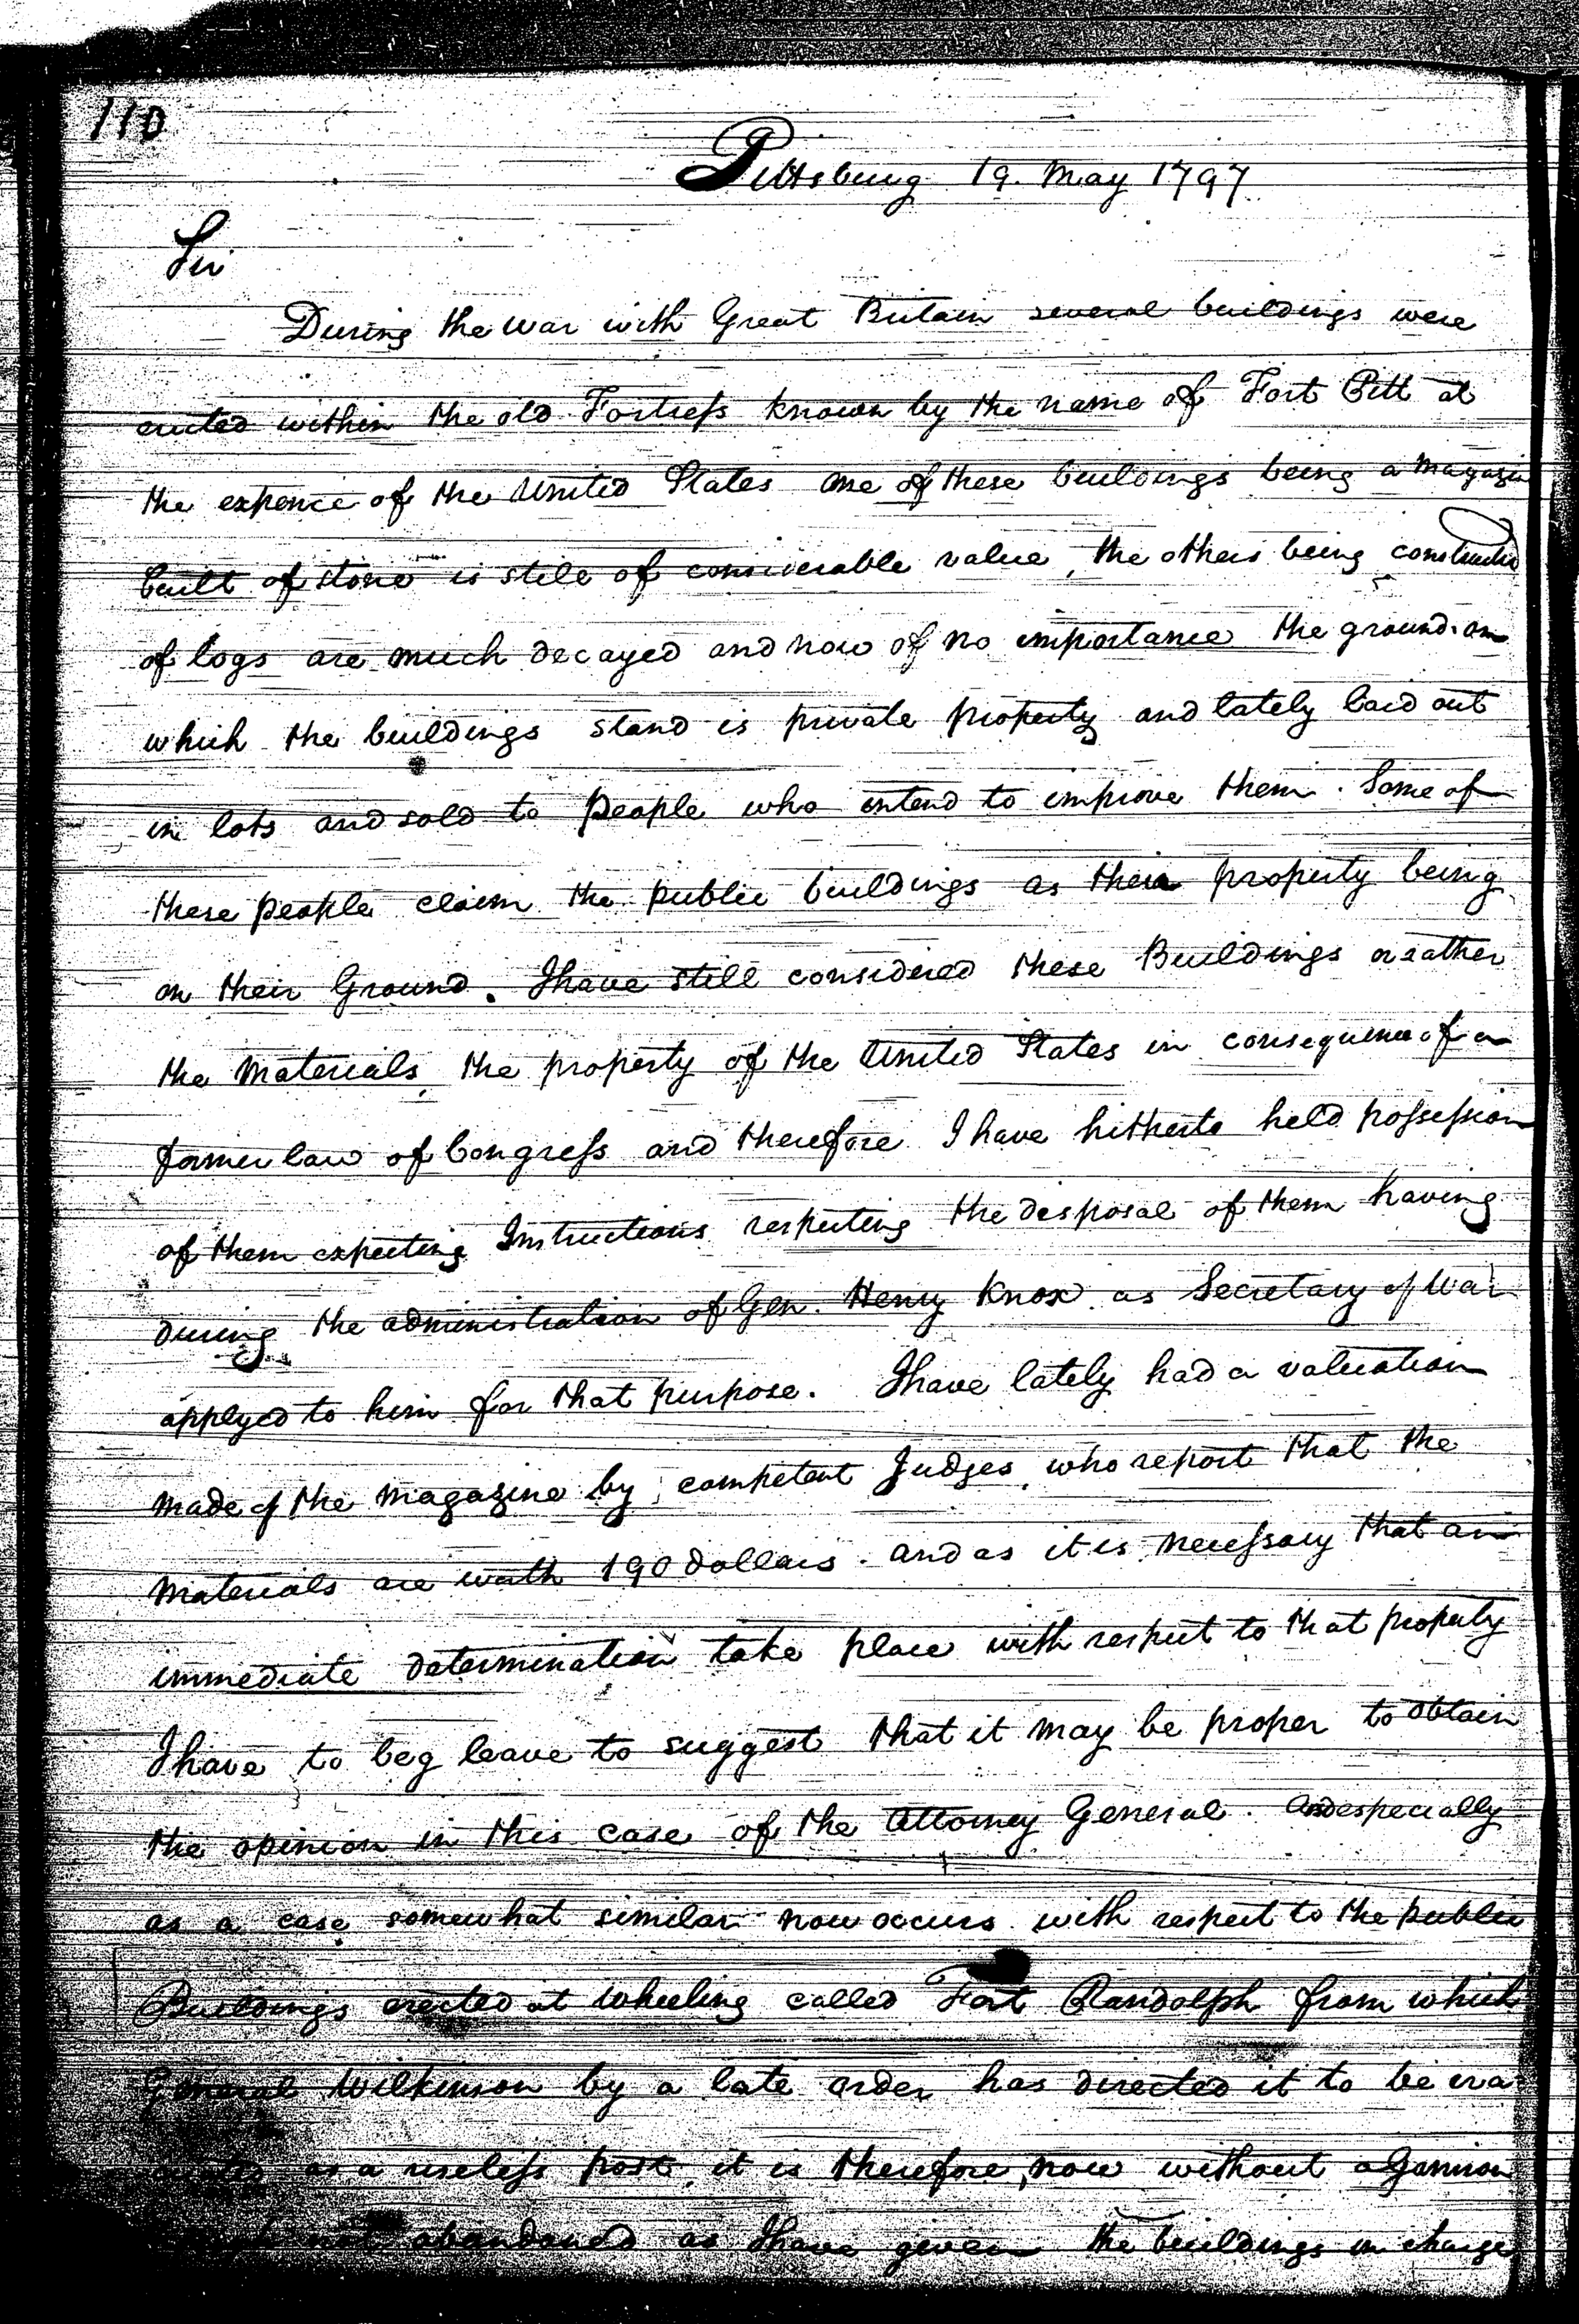 110
Pittsburg 19. May 1797
Sir
During the war with Great Britain several buildings were
erected within the old Fortress known by the name of Fort Pitt at
the expence of the United States one of these buildings being a Magazin
built of stone is still of considerable value, the others being constructed
of logs are much decayed and now of no importance the ground on
which the buildings stand is private property and lately laid out
in lots and sold to people who intend to improve them. Some of
these people claim the public buildings as their property being
on their Ground. I have still considered these Buildings or rather
the Materials, the property of the United States in consequence of a
former law of Congress and therefore I have hitherto held possession
of them expecting Instructions respecting the disposal of them having
during the administration of Gen. Henry Knox as Secretary of War
applyed to him for that purpose. I have lately had a valuation
made of the Magazine by competent Judges, who report that the
Materials are worth 190 dollars. and as it is necessary that an
immediate determination take place with respect to that property
I have to beg leave to suggest that it may be proper to obtain
the opinion in this case of the Attorney General. And especially
as a case somewhat similar now occurs with respect to the public
Buildings erected at Wheeling called Fort Randolph from which
General Wilkinson by a late order has directed it to be eva
as a useless post, it is therefore, now without a Garrison
not abandoned as I have given the buildings in charge